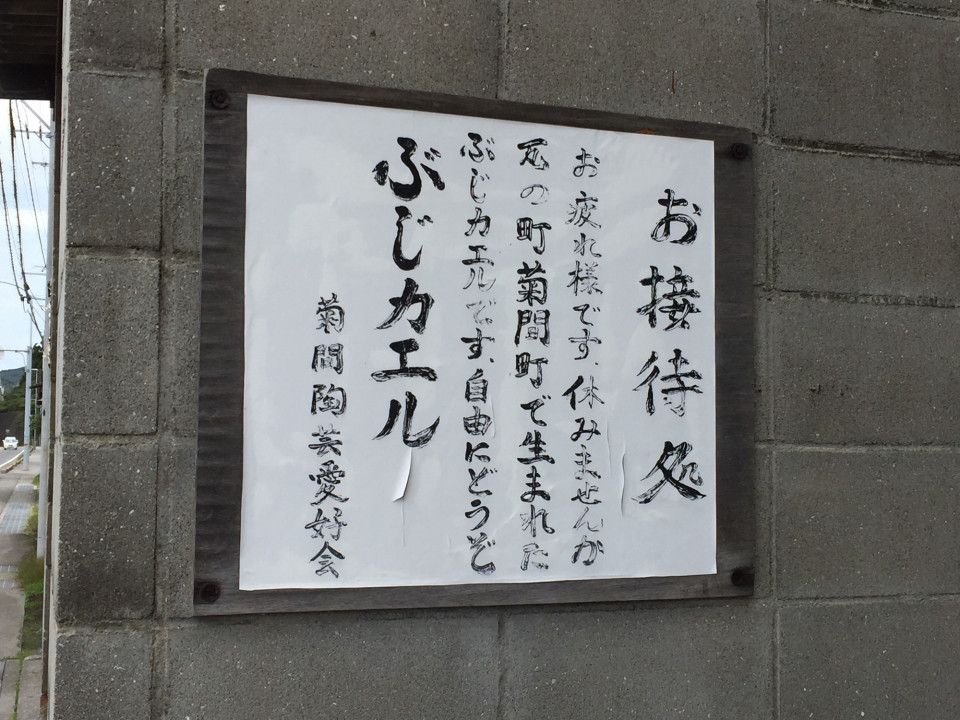 お接待処
お疲れ様です.休みませんか
瓦の町菊間町で生まれた
ぶじカエルです.自由にどうぞ
ぶじカエル
菊間陶芸愛好会